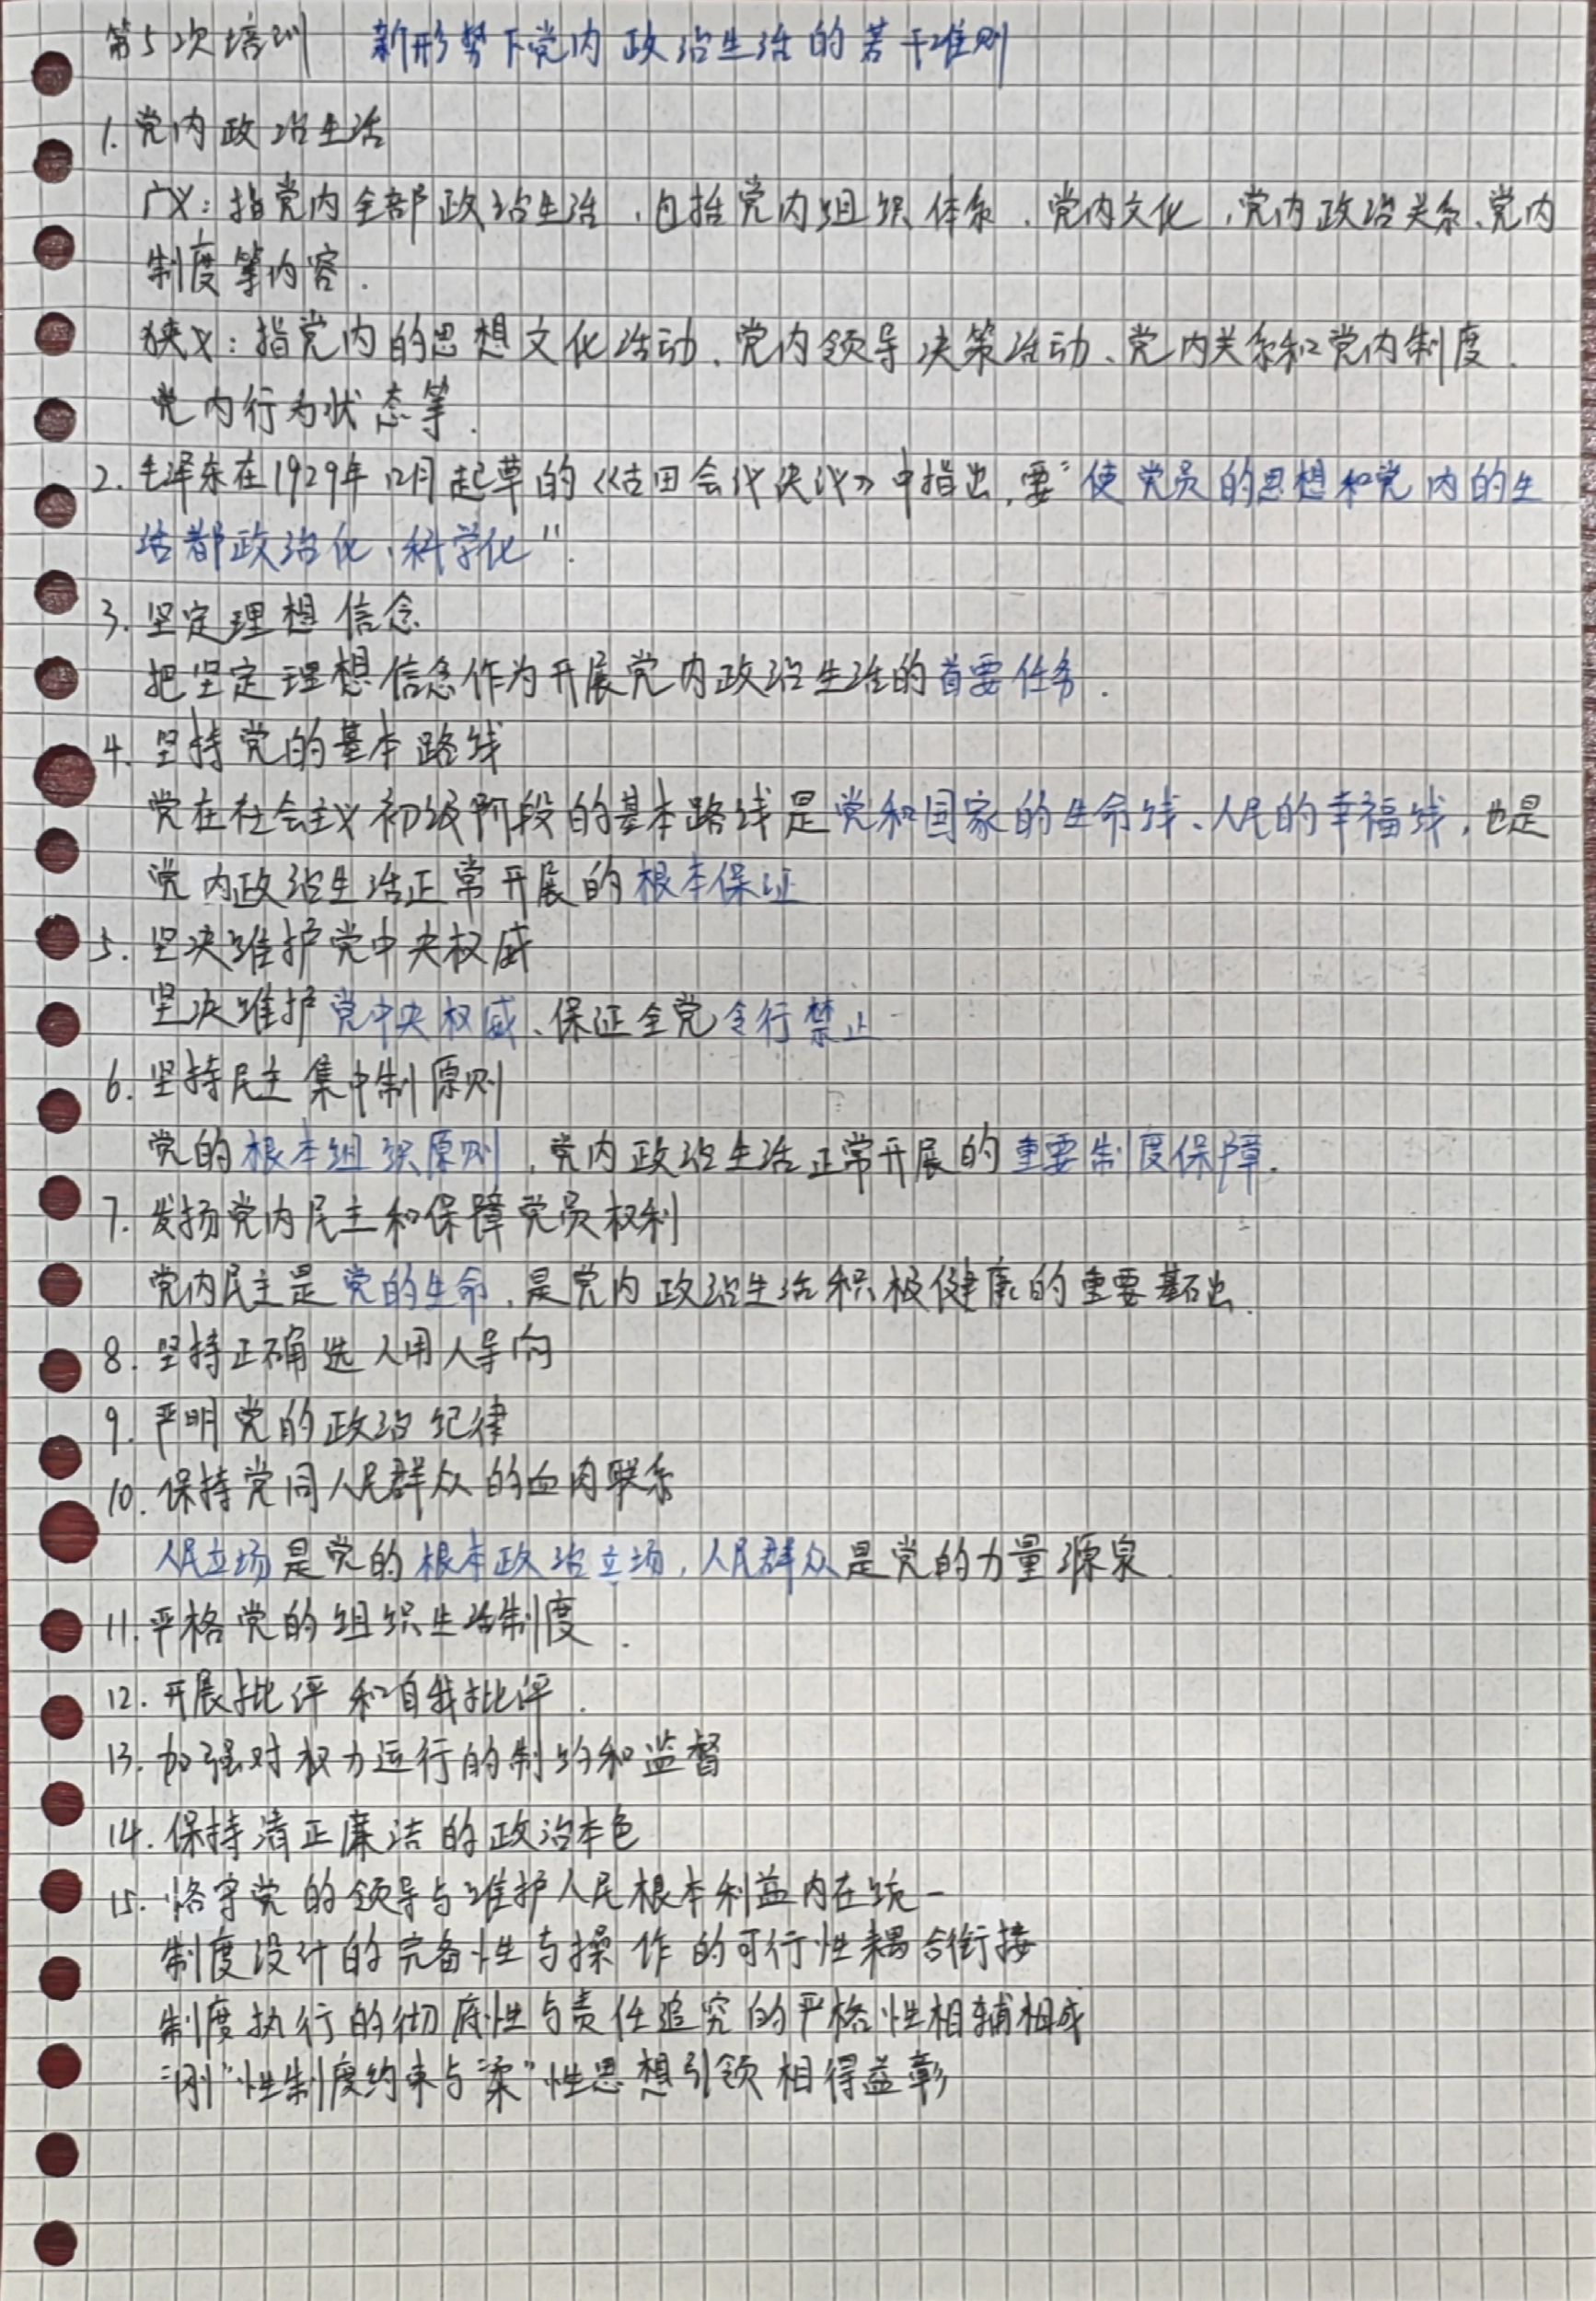 第5次培训 新形势下党内政治生活的若干准则
1. 党内政治生活
广义：指党内全部政治生活，包括党内组织体系、党内文化，党内政治关系、党内
制度等内容.
狭义：指党内的思想文化活动、党内领导决策活动、党内关系和党内制度、
党内行为状态等.
2. 毛泽东在1929年12月起草的《古田会议决议》中指出，要“使党员的思想和党内的生
活都政治化、科学化”.
3. 坚定理想信念
把坚定理想信念作为开展党内政治生活的首要任务.
4. 坚持党的基本路线
党在社会主义初级阶段的基本路线是党和国家的生命线、人民的幸福线，也是
党内政治生活正常开展的根本保证
5. 坚决维护党中央权威
坚决维护党中央权威、保证全党令行禁止
6. 坚持民主集中制原则
党的根本组织原则，党内政治生活正常开展的重要制度保障.
7. 发扬党内民主和保障党员权利
党内民主是党的生命，是党内政治生活积极健康的重要基础.
8. 坚持正确选人用人导向
9. 严明党的政治纪律
10. 保持党同人民群众的血肉联系
人民立场是党的根本政治立场，人民群众是党的力量源泉.
11. 严格党的组织生活制度.
12. 开展批评和自我批评.
13. 加强对权力运行的制约和监督
14. 保持清正廉洁的政治本色
15. 恪守党的领导与维护人民根本利益内在统一
制度设计的完备性与操作的可行性耦合衔接
制度执行的彻底性与责任追究的严格性相辅相成
“刚”性制度约束与“柔”性思想引领相得益彰